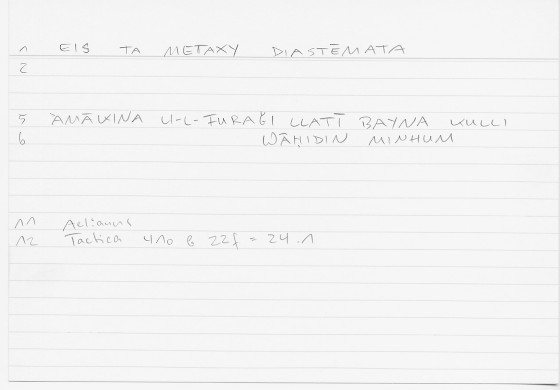 1 EIS TA METAXY DIASTĒMATA
2
5 AMĀKINA LI-L-FURAǦI LLATĪ BAYNA KULLI
6 WĀḤIDIN MINHUM
11 Aelianus
12 Tactica 410 b 22f = 24.1